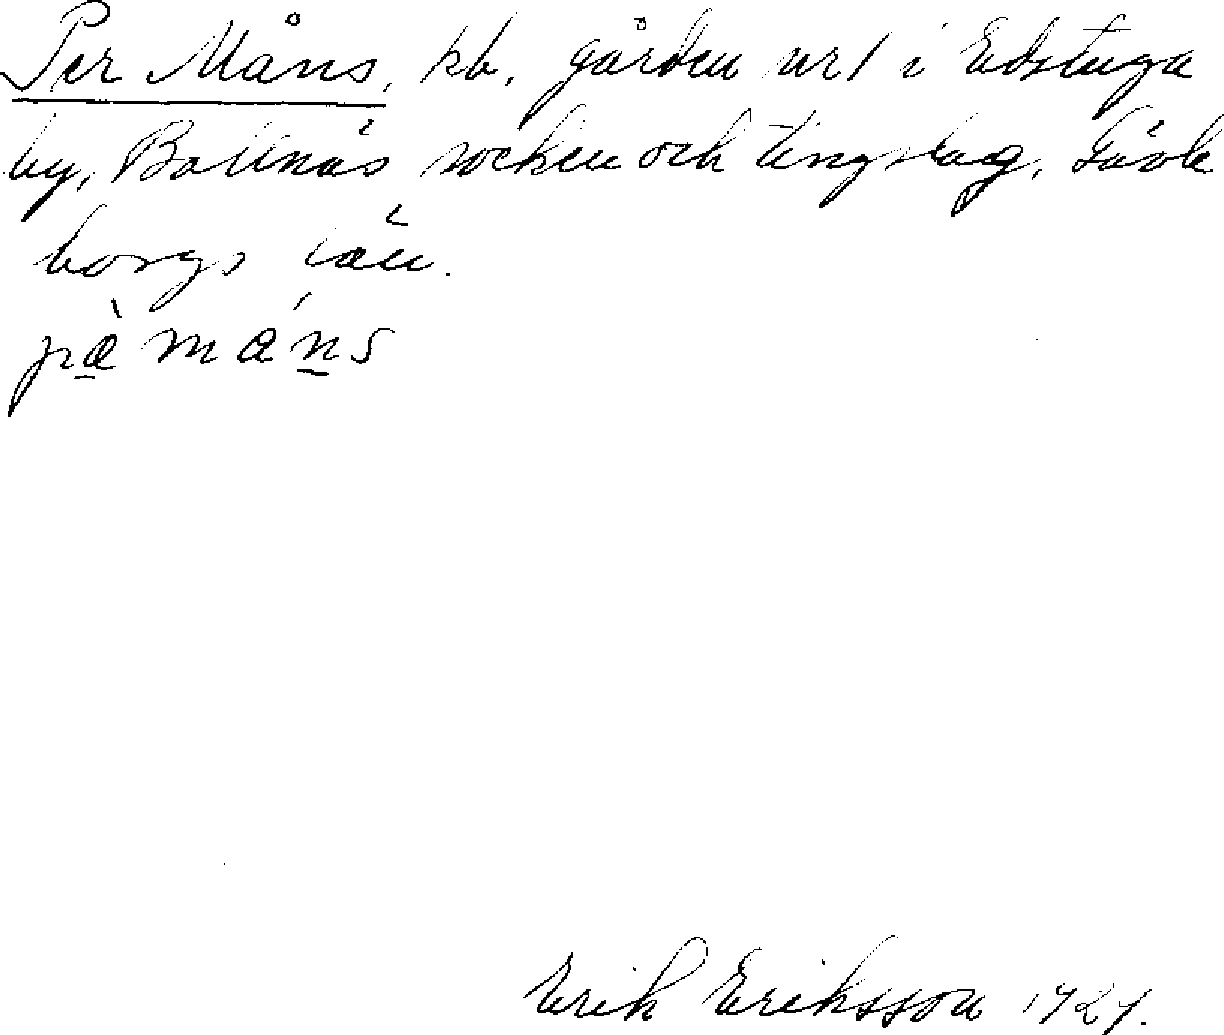 Per Måns, kb. gården nr 1 i Edstuga
by, Bollnäs socken och tingslag, Gävle
borgs län.
pæ̀ máns
Erik Eriksson 1927.